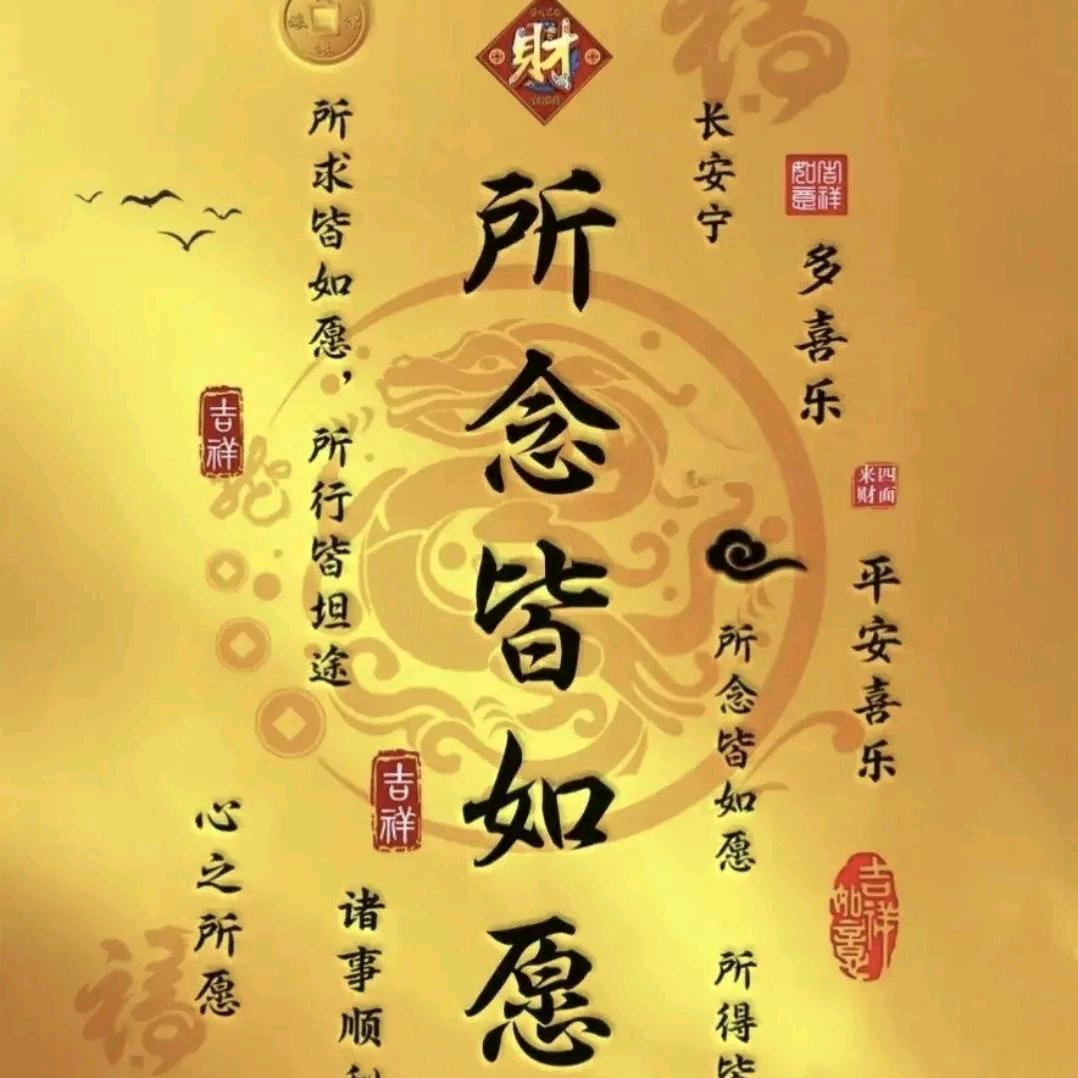 財
長安宁
吉祥如意
多喜乐
四面来财
平安喜乐
所念皆如愿
所得
吉祥如意
所念皆如愿
所求皆如愿，所行皆坦途
吉祥
吉祥
诸事顺
心之所愿
福
福